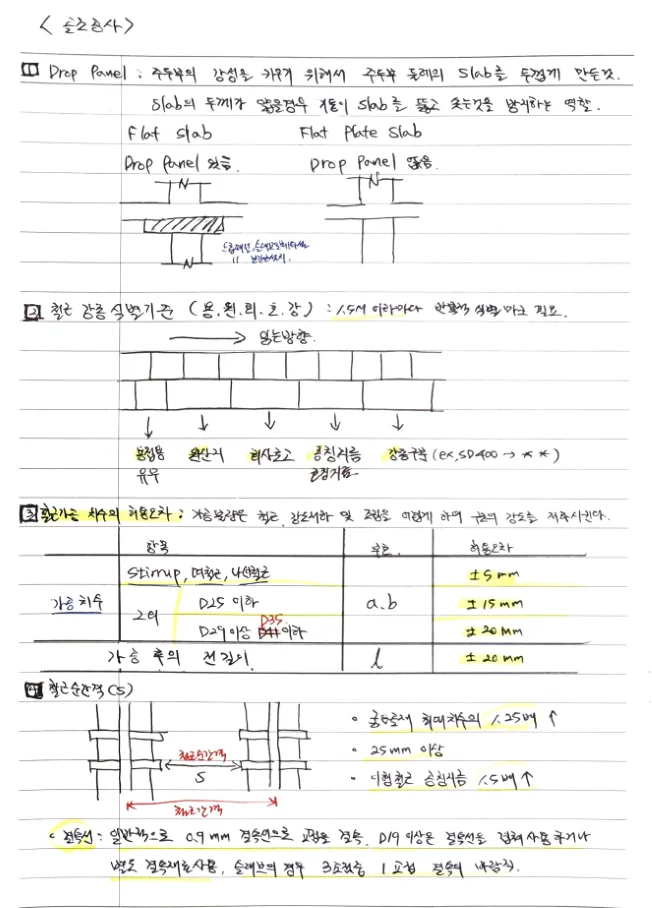 < 골조공사 >
1 Drop Panel : 주두부의 강성을 키우기 위해서 주두부 둘레의 Slab를 두껍게 만든것.
Slab의 두께가 얇을경우 기둥이 Slab를 뚫고 솟는것을 방지하는 역할.
Flat slab
Flat Plate Slab
Drop Panel 있음.
Drop Panel 없음.
N
N
N
2 철근 강종 식별기준 (용.원.회.호.강) : 1.5M 이하마다 반복적 식별마크 필요.
읽는방향.
용접용 원산지 회사로고 공칭지름 강종구분 (ex, SD400 → * *)
유무
3 철근가공 치수의 허용오차 : 가공불량은 철근 강도저하 및 조립을 어렵게 하여 구조의 강도를 저하시킨다.
항목 부호 허용오차
Stirrup, 띠철근, 나선철근 ±5mm
가공치수 D25 이하 a.b ±15mm
그외 D35
D29이상 D41 이하 ±20mm
가공 후의 전길이 l ±20mm
4 철근순간격(S)
철근순간격
S
철근간격
• 굵은골재 최대치수의 1.25배 ↑
• 25mm 이상
• 이형철근 공칭지름 1.5배 ↑
• 결속선 : 일반적으로 0.9mm 결속선으로 교점을 결속. D19 이상은 결속선을 겹쳐 사용하거나
별도 결속재료 사용, 슬래브의 경우 3교점중 1교점 결속이 바람직.